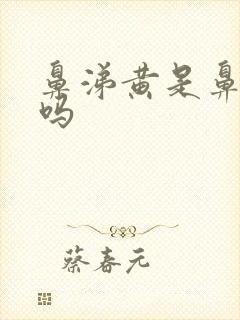 鼻涕黄是鼻
吗
蔡春元